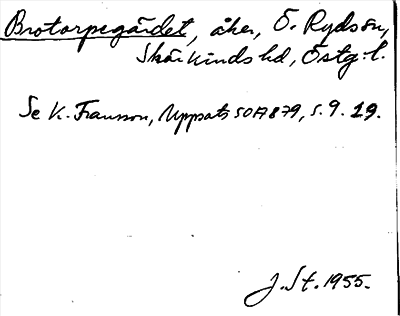 Brotorpegärdet, åker, Ö. Ryds sn,
Skärkinds hd, Östg. l.
Se K. Fransson, Uppsats SOFA 879, s. 9. 19.
J. St. 1955.